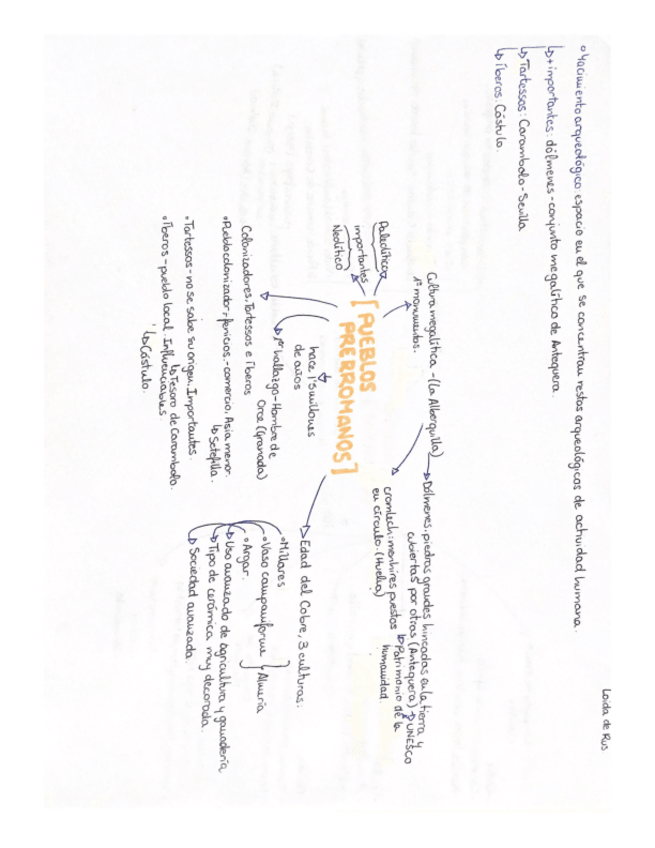 Laida de Rus
• Yacimiento arqueológico: espacio en el que se concentran restos arqueológicos de actividad humana.
↳ + importantes: dólmenes - conjunto megalítico de Antequera.
↳ Tartessos: Carambolo - Sevilla
↳ Íberos: Cástulo.
[PUEBLOS
PRERROMANOS]
Paleolítico
importantes
Neolítico
Cultura megalítica - (La Alberquilla)
1º monumentos.
→ Dólmenes, piedras grandes hincadas en la tierra y
cubiertas por otras (Antequera) → UNESCO
↳ Patrimonio de la
humanidad.
cromlech: menhires puestos
en círculo. (Huelva)
hace 1'5 millones
de años
↳ 1er hallazgo - Hombre de
Orce (Granada)
Colonizadores, Tartessos e íberos
• Pueblo colonizador - fenicios - comercio, Asia menor.
↳ Setefilla.
• Tartessos - no se sabe su origen. Importantes.
↳ Tesoro de Carambolo.
• Íberos - pueblo local. Influenciables.
↳ Cástulo.
→ Edad del Cobre, 3 culturas:
• Millares
• Vaso campaniforme } Almería
• Argar.
↳ Uso avanzado de agricultura y ganadería
↳ Tipo de cerámica muy decorada.
↳ Sociedad avanzada.